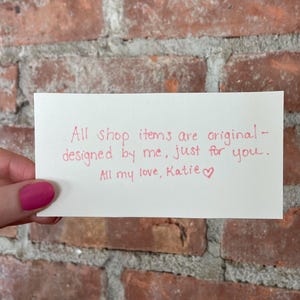 All shop items are original-
designed by me, just for you.
All my love, Katie♡